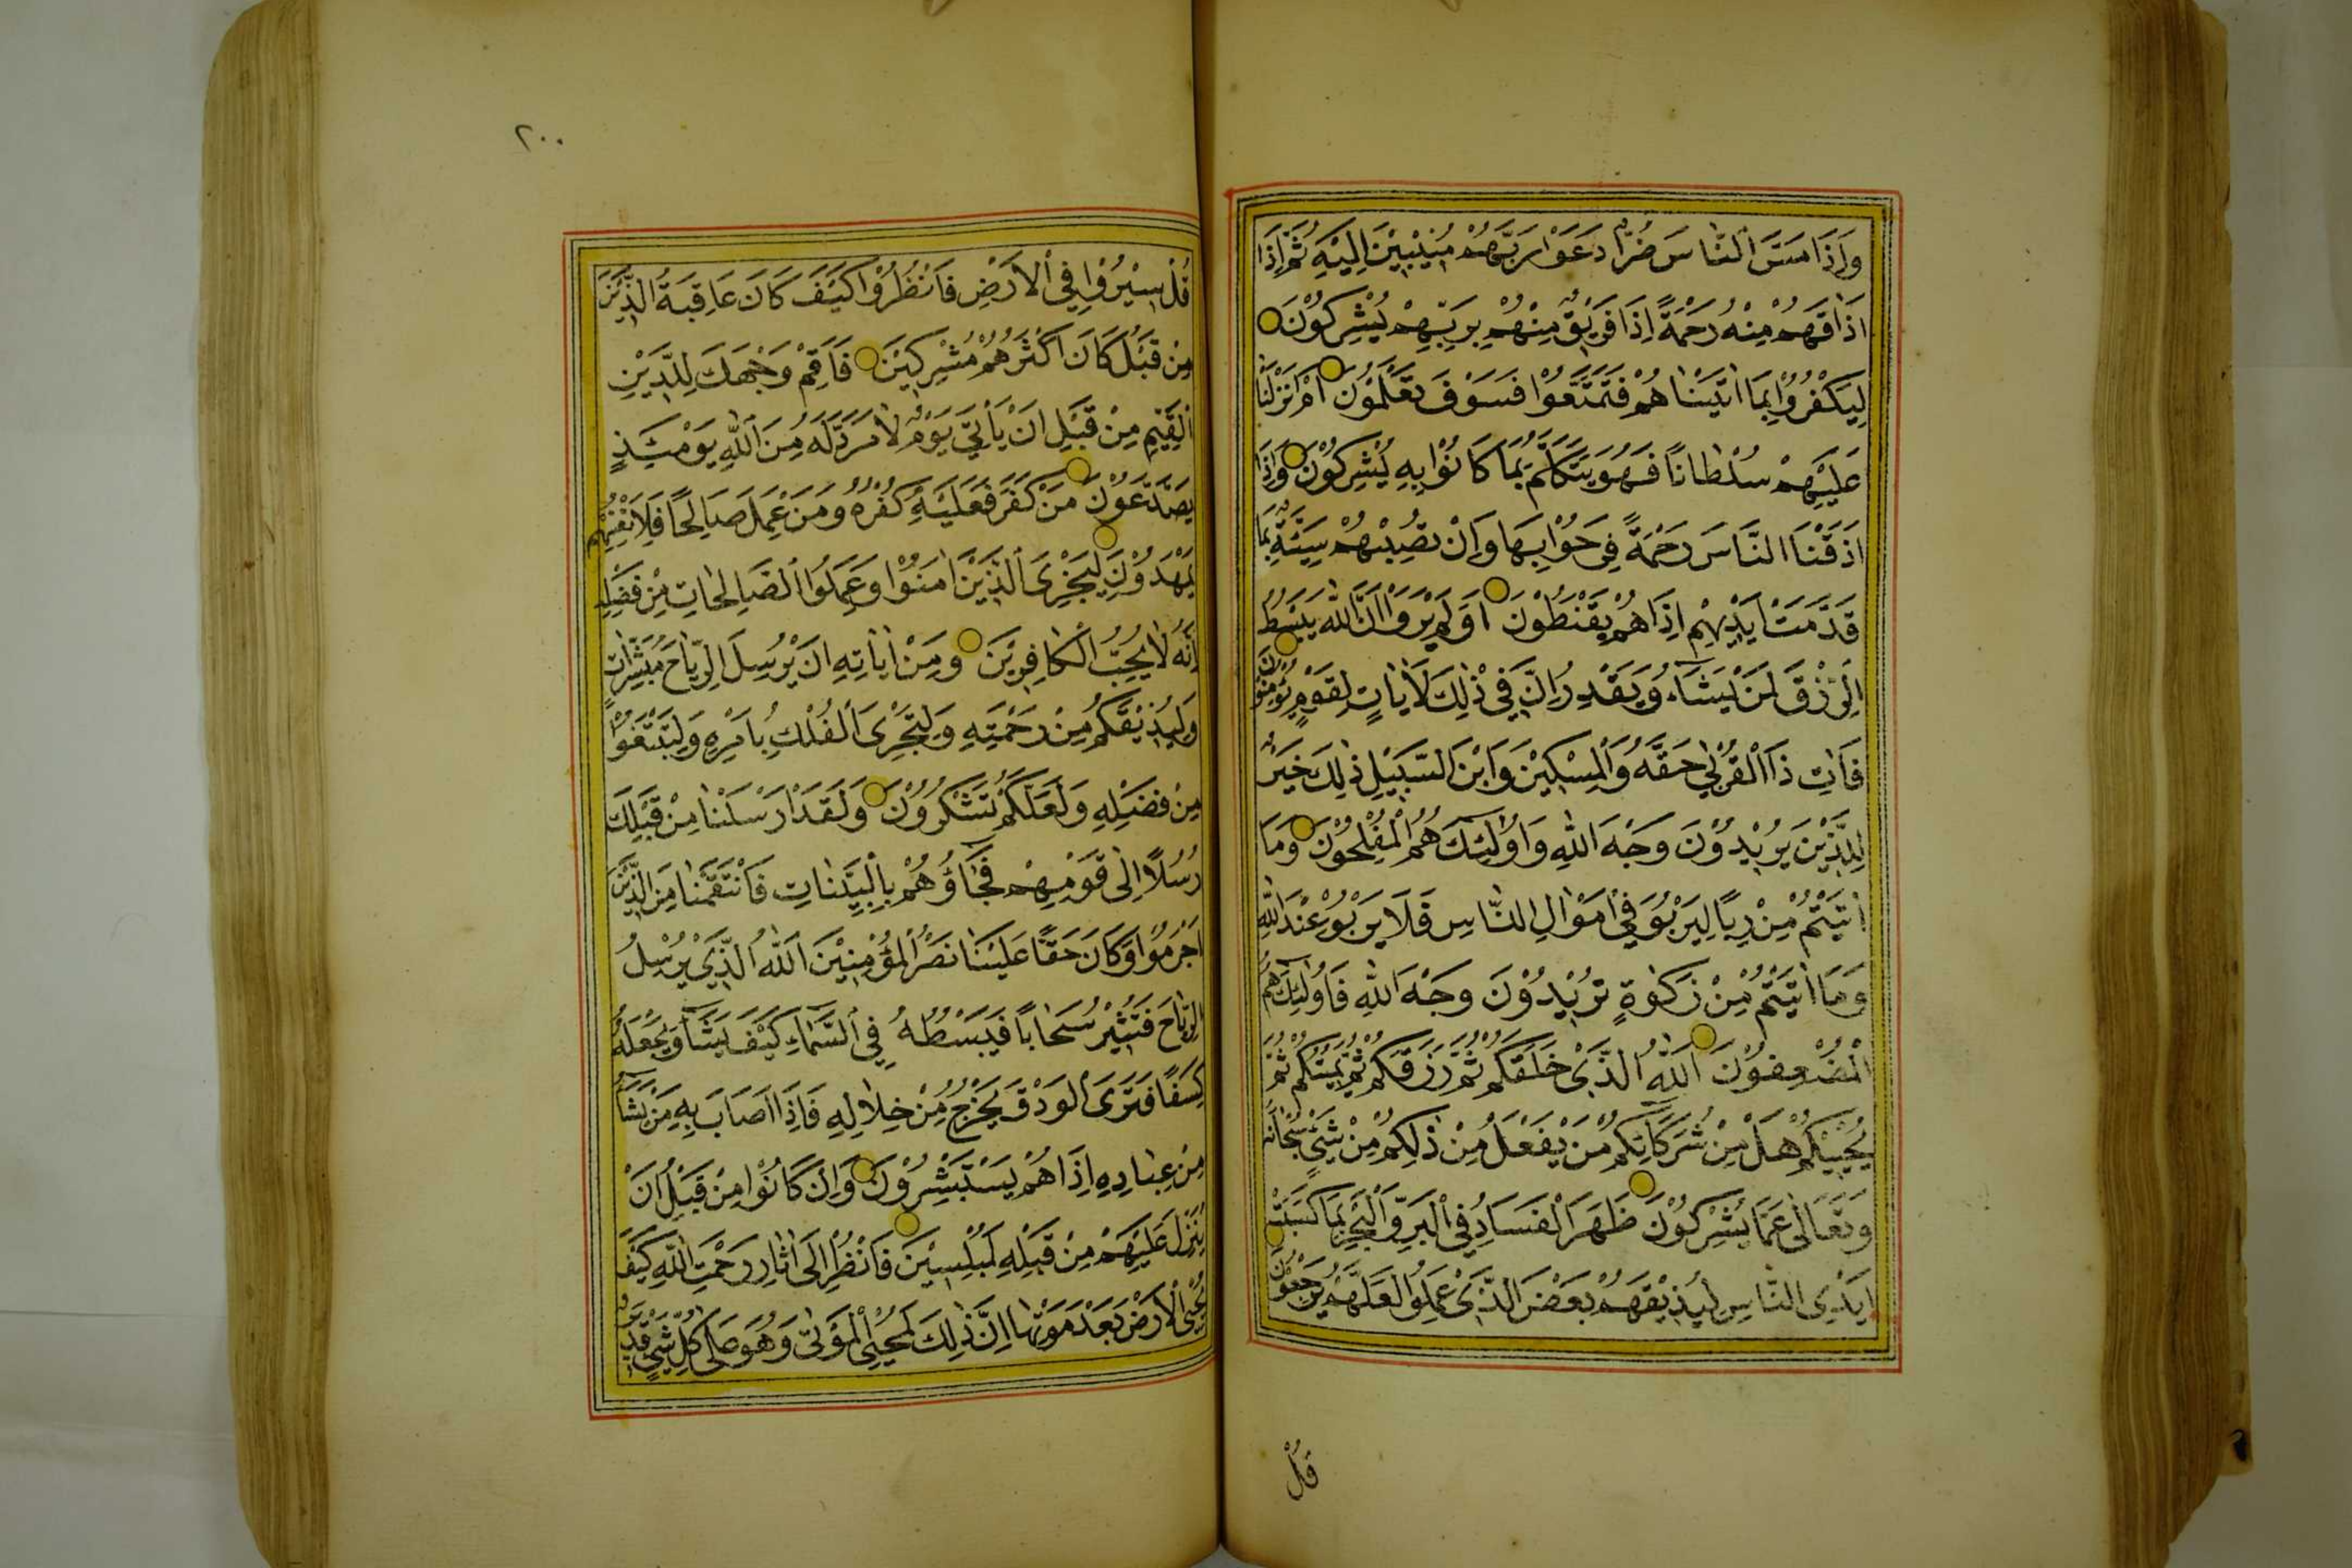 وَاِذَا مَسَّ النَّاسَ ضُرٌّ دَعَوْا رَبَّهُمْ مُنِيْبِيْنَ اِلَيْهِ ثُمَّ اِذَا
اَذَاقَهُمْ مِنْهُ رَحْمَةً اِذَا فَرِيْقٌ مِنْهُمْ بِرَبِّهِمْ يُشْرِكُوْنَ
لِيَكْفُرُوْا بِمَا اٰتَيْنَاهُمْ فَتَمَتَّعُوْا فَسَوْفَ تَعْلَمُوْنَ اَمْ اَنْزَلْنَا
عَلَيْهِمْ سُلْطَانًا فَهُوَ يَتَكَلَّمُ بِمَا كَانُوْا بِهِ يُشْرِكُوْنَ وَاِذَا
اَذَقْنَا النَّاسَ رَحْمَةً فَرِحُوْا بِهَا وَاِنْ تُصِبْهُمْ سَيِّئَةٌ بِمَا
قَدَّمَتْ اَيْدِيْهِمْ اِذَا هُمْ يَقْنَطُوْنَ اَوَلَمْ يَرَوْا اَنَّ اللّٰهَ يَبْسُطُ
الرِّزْقَ لِمَنْ يَشَاءُ وَيَقْدِرُ اِنَّ فِيْ ذٰلِكَ لَاٰيَاتٍ لِقَوْمٍ يُؤْمِنُوْنَ
فَاٰتِ ذَا الْقُرْبٰى حَقَّهُ وَالْمِسْكِيْنَ وَابْنَ السَّبِيْلِ ذٰلِكَ خَيْرٌ
لِلَّذِيْنَ يُرِيْدُوْنَ وَجْهَ اللّٰهِ وَاُولٰئِكَ هُمُ الْمُفْلِحُوْنَ وَمَا
اٰتَيْتُمْ مِنْ رِبًا لِيَرْبُوَ فِيْ اَمْوَالِ النَّاسِ فَلَا يَرْبُوْ عِنْدَ اللّٰهِ
وَمَا اٰتَيْتُمْ مِنْ زَكٰوةٍ تُرِيْدُوْنَ وَجْهَ اللّٰهِ فَاُولٰئِكَ هُمُ
الْمُضْعِفُوْنَ اَللّٰهُ الَّذِيْ خَلَقَكُمْ ثُمَّ رَزَقَكُمْ ثُمَّ يُمِيْتُكُمْ ثُمَّ
يُحْيِيْكُمْ هَلْ مِنْ شُرَكَائِكُمْ مَنْ يَفْعَلُ مِنْ ذٰلِكُمْ مِنْ شَيْءٍ سُبْحَانَهُ
وَتَعَالٰى عَمَّا يُشْرِكُوْنَ ظَهَرَ الْفَسَادُ فِي الْبَرِّ وَالْبَحْرِ بِمَا كَسَبَتْ
اَيْدِي النَّاسِ لِيُذِيْقَهُمْ بَعْضَ الَّذِيْ عَمِلُوْا لَعَلَّهُمْ يَرْجِعُوْنَ
قُلْ
٢٠٠
قُلْ سِيْرُوْا فِي الْاَرْضِ فَانْظُرُوْا كَيْفَ كَانَ عَاقِبَةُ الَّذِيْنَ
مِنْ قَبْلُ كَانَ اَكْثَرُهُمْ مُشْرِكِيْنَ فَاَقِمْ وَجْهَكَ لِلدِّيْنِ
الْقَيِّمِ مِنْ قَبْلِ اَنْ يَأْتِيَ يَوْمٌ لَا مَرَدَّ لَهُ مِنَ اللّٰهِ يَوْمَئِذٍ
يَصَّدَّعُوْنَ مَنْ كَفَرَ فَعَلَيْهِ كُفْرُهُ وَمَنْ عَمِلَ صَالِحًا فَلِاَنْفُسِهِمْ
يَمْهَدُوْنَ لِيَجْزِيَ الَّذِيْنَ اٰمَنُوْا وَعَمِلُوا الصَّالِحَاتِ مِنْ فَضْلِهِ
اِنَّهُ لَا يُحِبُّ الْكَافِرِيْنَ وَمِنْ اٰيَاتِهِ اَنْ يُرْسِلَ الرِّيَاحَ مُبَشِّرَاتٍ
وَلِيُذِيْقَكُمْ مِنْ رَحْمَتِهِ وَلِتَجْرِيَ الْفُلْكُ بِاَمْرِهِ وَلِتَبْتَغُوْا
مِنْ فَضْلِهِ وَلَعَلَّكُمْ تَشْكُرُوْنَ وَلَقَدْ اَرْسَلْنَا مِنْ قَبْلِكَ
رُسُلًا اِلٰى قَوْمِهِمْ فَجَاؤُهُمْ بِالْبَيِّنَاتِ فَانْتَقَمْنَا مِنَ الَّذِيْنَ
اَجْرَمُوْا وَكَانَ حَقًّا عَلَيْنَا نَصْرُ الْمُؤْمِنِيْنَ اَللّٰهُ الَّذِيْ يُرْسِلُ
الرِّيَاحَ فَتُثِيْرُ سَحَابًا فَيَبْسُطُهُ فِي السَّمَاءِ كَيْفَ يَشَاءُ وَيَجْعَلُهُ
كِسَفًا فَتَرَى الْوَدْقَ يَخْرُجُ مِنْ خِلَالِهِ فَاِذَا اَصَابَ بِهِ مَنْ يَشَاءُ
مِنْ عِبَادِهِ اِذَا هُمْ يَسْتَبْشِرُوْنَ وَاِنْ كَانُوْا مِنْ قَبْلِ اَنْ
يُنَزَّلَ عَلَيْهِمْ مِنْ قَبْلِهِ لَمُبْلِسِيْنَ فَانْظُرْ اِلٰى اٰثَارِ رَحْمَتِ اللّٰهِ كَيْفَ
يُحْيِي الْاَرْضَ بَعْدَ مَوْتِهَا اِنَّ ذٰلِكَ لَمُحْيِي الْمَوْتٰى وَهُوَ عَلٰى كُلِّ شَيْءٍ قَدِيْرٌ